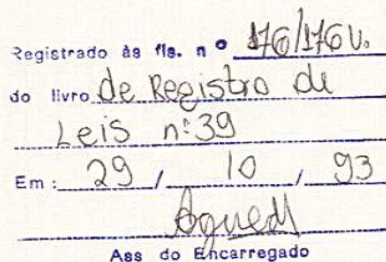 Registrado às fls. nº 176/176 V.
do livro de Registro de
Leis nº: 39
Em: 29 / 10 / 93
Ass do Encarregado